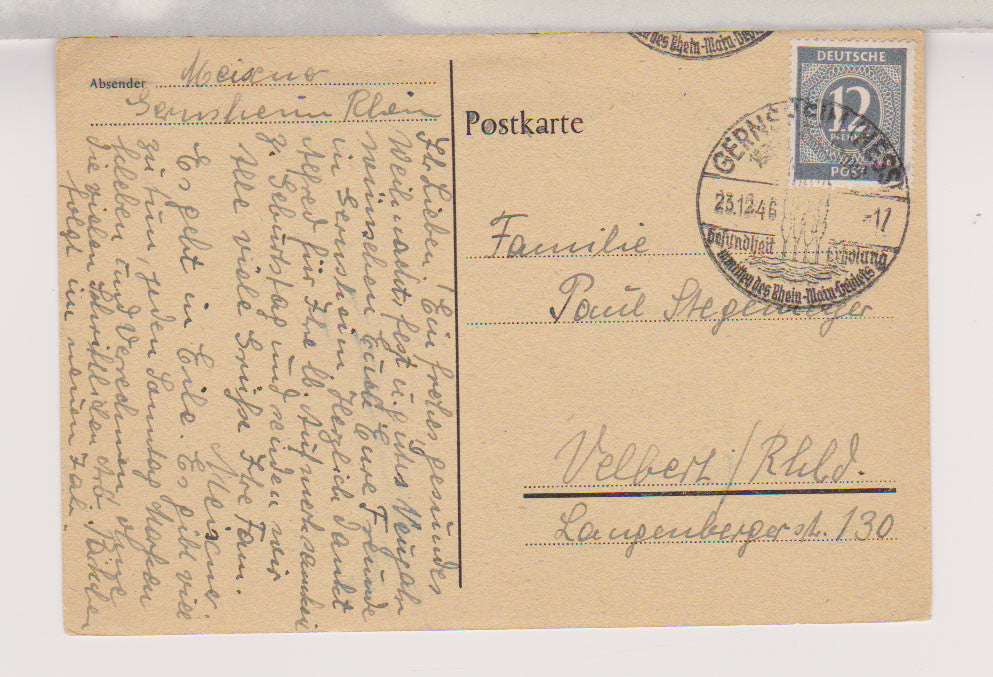 Absender Meixner
Gernsheim Rhein
Postkarte
des Rhein-Main-
DEUTSCHE
12
PFENNIG
POST
GERNSHEIM (HESS)
23.12.46 -17
Gesundheit Erholung
inmitten des Rhein-Main-Gebietes
Familie
Paul Stegemeyer
Velbert / Rhld.
Langenberger str. 130
Ihr Lieben! Ein frohes gesundes
Weihnachtsfest u. gutes Neujahr
wünschen Euch Eure Freunde
in Gernsheim Herzlich dankt
Alfred für Ihre lb. Aufmerksamkeit
z. Geburtstag und senden wir
Alle viele Grüße Ihre Fam.
Meixner
Es geht in Eile. Es gibt viel
zu tun, jeden Sonntag
und Verrechnen
die vielen schriftlichen
folgt im neuen Jahr.